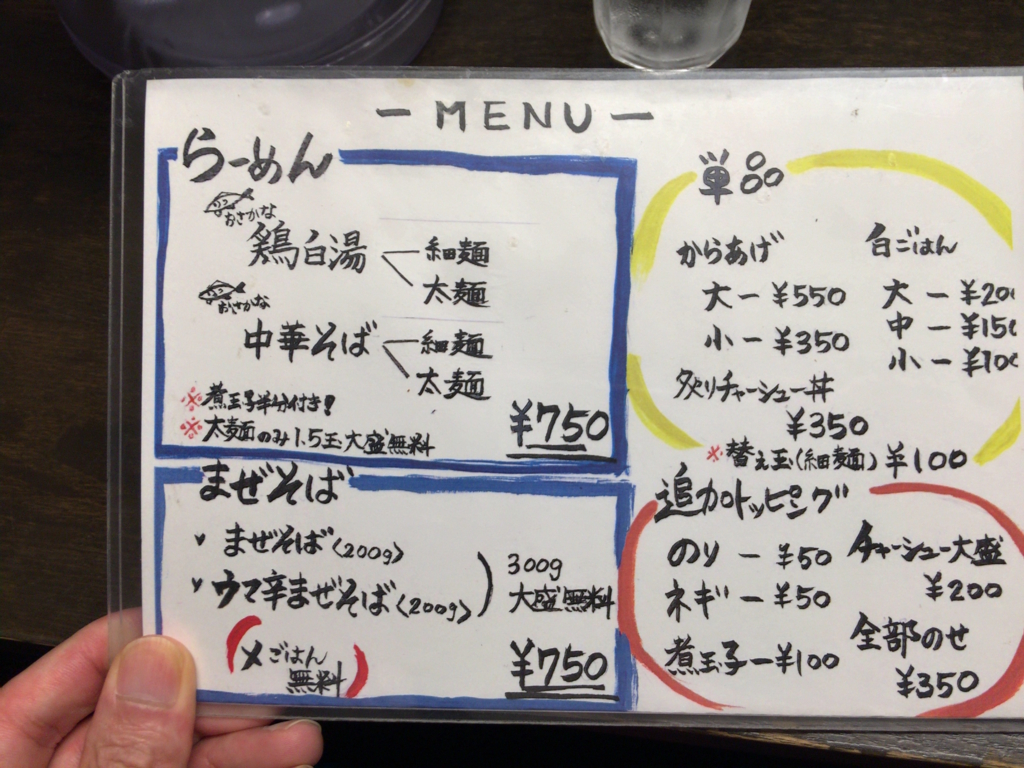 ーMENUー
らーめん
おさかな
鶏白湯
細麺
太麺
おさかな
中華そば
細麺
太麺
※煮玉子半分付き!
※太麺のみ1.5玉大盛無料
¥750
まぜそば
まぜそば〈200g〉
ウマ辛まぜそば〈200g〉
300g
大盛無料
(〆ごはん
無料)
¥750
単品
からあげ
大ー¥550
小ー¥350
白ごはん
大ー¥200
中ー¥150
小ー¥100
炙りチャーシュー丼
¥350
※替え玉(細麺)¥100
追加トッピング
のりー¥50
ネギー¥50
煮玉子ー¥100
チャーシュー大盛
¥200
全部のせ
¥350